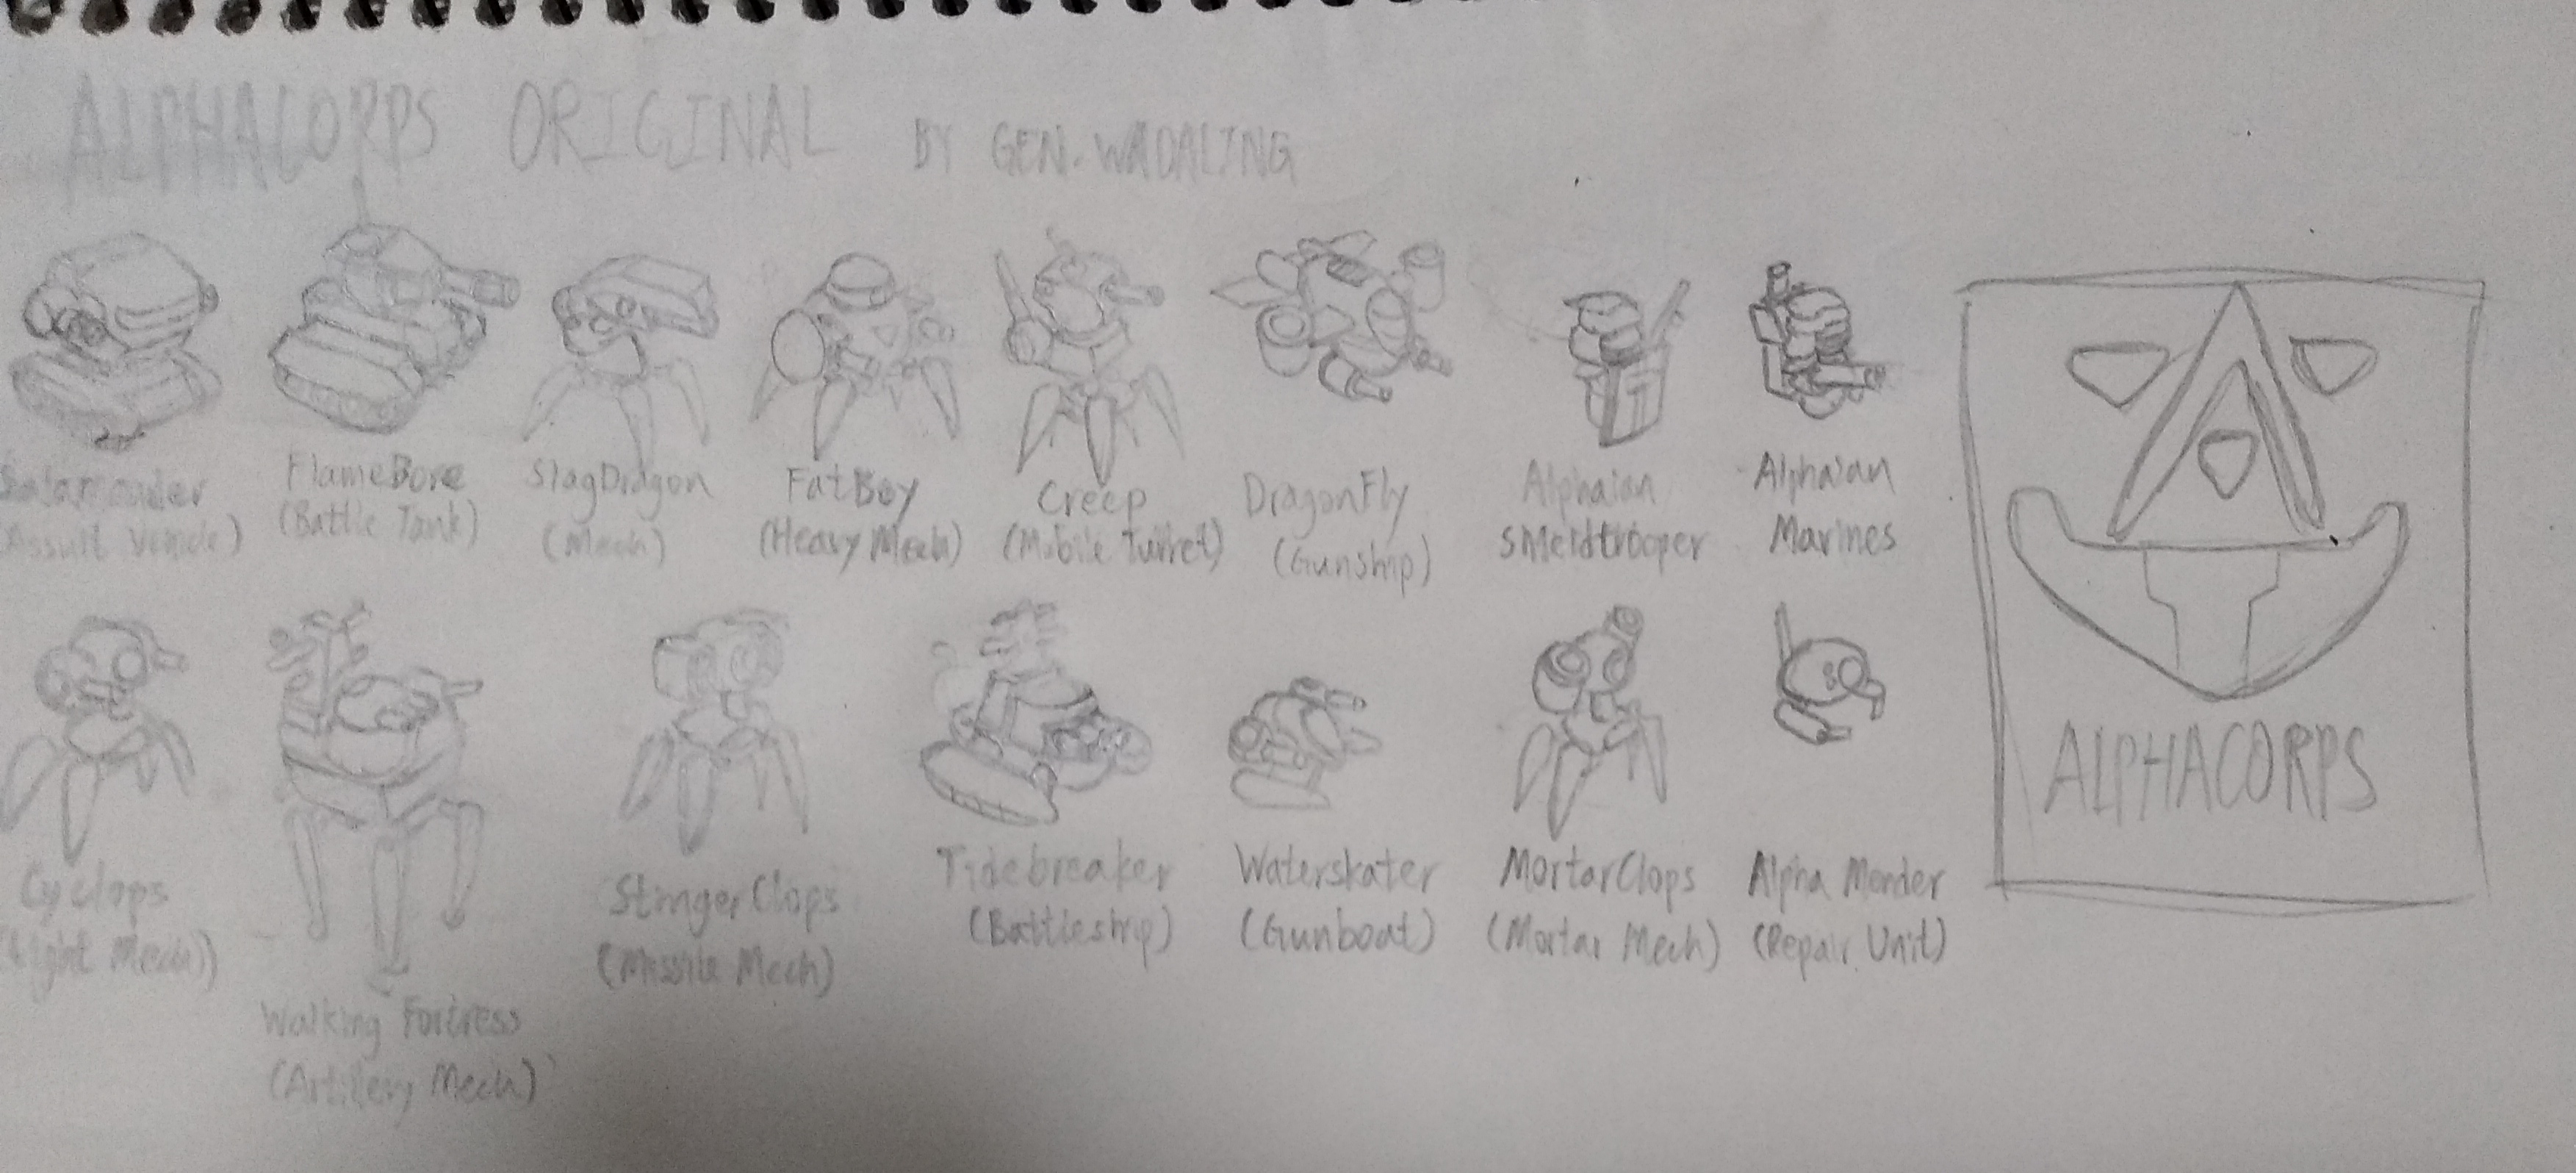 ALPHACORPS ORIGINAL BY GEN. WADALING
Salamander
(Assult Vehicle)
FlameBore
(Battle Tank)
SlagDragon
(Mech)
FatBoy
(Heavy Mech)
Creep
(Mobile Turret)
DragonFly
(Gunship)
Alphaian
Shieldtrooper
Alphaian
Marines
Cyclops
(Light Mech)
Walking Fortress
(Artillery Mech)
StingerClops
(Missile Mech)
Tidebreaker
(Battleship)
Waterskater
(Gunboat)
MortarClops
(Mortar Mech)
Alpha Mender
(Repair Unit)
ALPHACORPS